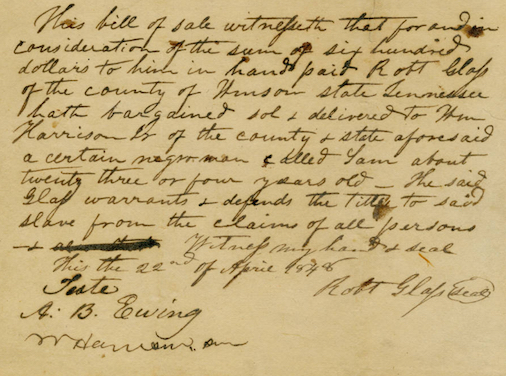 This bill of sale witnesseth that for and in
consideration of the sum of six hundred
dollars to him in hand paid Robt Glass
of the county of state Tennessee
hath bargained sol & delivered to Wm
Harrison Sr of the county & state aforesaid
a certain negro man called Sam about
twenty three or four years old – The said
Glass warrants & defends the title to said
slave from the claims of all persons
& Witness my hand & seal
This the 22nd of April 1848
Teste
Robt Glass (seal)
A. B. Ewing
W Harrison